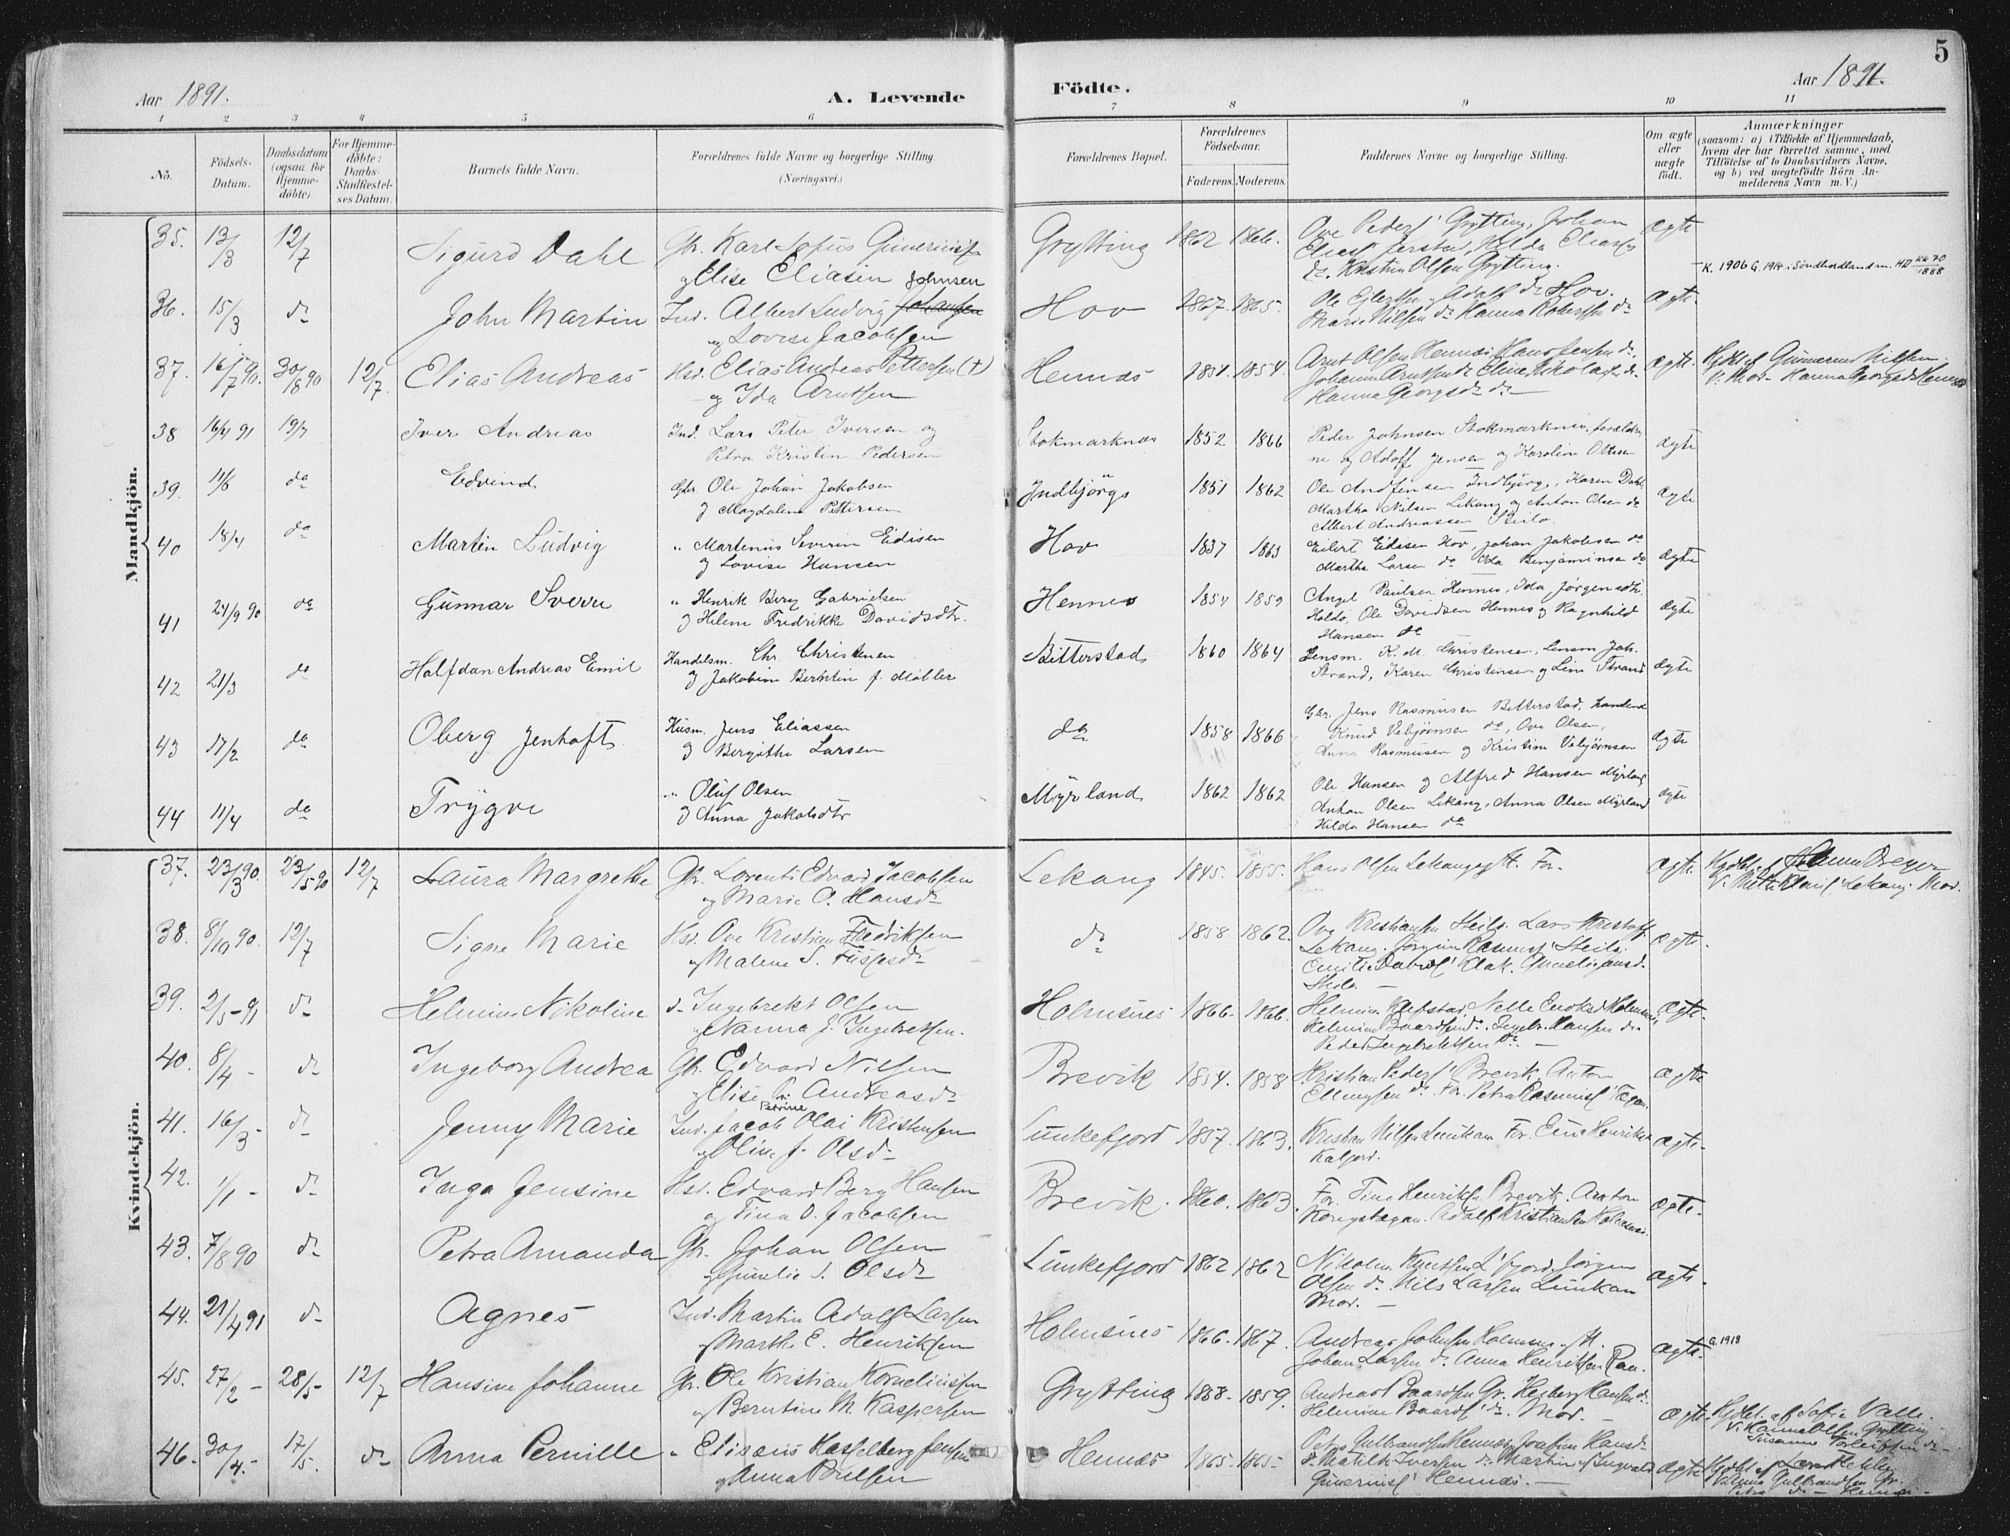 5
Aar 1891.
A. Levende
Födte.
Aar 1891.
1 2 3 4 5 6 7 8 9 10 11
No.
Födsels-Datum.
Daabsdatum (ogsaa for Hjemmedöbte).
For Hjemmedöbte: Daabs-Stadfæstelses Datum.
Barnets fulde Navn.
Forældrenes fulde Navne og borgerlige Stilling.
(Næringsvei.)
Forældrenes Bopæl.
Forældrenes Födselsaar.
Faderens. Moderens.
Faddernes Navne og borgerlige Stilling.
Om ægte eller uægte födt.
Anmærkninger
(saasom: a) i Tilfælde af Hjemmedaab, hvem der har forrettet samme, med Tilföielse af to Daabsvidners Navne, og b) ved uægtefödte Börn Anmelderens Navn m. V.)
Mandkjön.
35. 13/3 12/7 Sigurd Dahl Gbr. Karl Sofus
og Elise Eliasen Grytting 1862 1866. Ove Peders' Grytting, Johan
Kristin Olsen Grytting. ægte
K. 1906 G. 1914 i Söndhordland m. HD KK 70/1888
36. 15/3 do John Martin Ind. Albert Ludvig Johansen Johnsen
og Lovise Jacobsen Hov 1867. 1865. Ole Adolf do Hov.
Marie Nilsen do Hanna do ægte
37. 16/7 90. 30/8 90 12/7 Elias Andreas Hsd. Elias Andreas Pettersen (+)
og Ida Arntsen Hennæs 1854. 1854. Arnt Olsen Hennæs, Hans Jensen do.,
Johanna Arntsen do Eline Nikolais do
Hanna Georgsd. do ægte. Hjdbt af Gunnerius Nilsen.
V. Mor - Hanna Georgsd. Hennæs
38 16/4 91 19/7 Iver Andreas Ind. Lars Peter Iversen og
Petra Kristin Pedersen Stokmarknæs 1852 1866 Peder Johnsen Stokmarknæs, forældre
ne og Adolf Jensen og Karoline Ottesen ægte
39. 11/6 do Edvind Gbr. Ole Johan Jakobsen
og Magdalene Pettersen Indbjörgs 1851 1862 Ole Andfinsen Indbjörg, Karen Dahl,
Martha Nilsen Lekang og Anton Olsen do
Albert Andreassen Steilo. ægte
40 18/4 do Martin Ludvig " Martenius Severin Edisen
og Lovise Hansen Hov 1837 1863 Eilert Edisen Hov, Johan Jakobsen do
Martha Larsen do Ida Benjaminsen do ægte
41 24/9 90 do Gunnar Sverre " Henrik Berg Gabrielsen
og Helene Fredrikke Davidsdtr. Hennes 1854 1859 Angel Paulsen Hennes, Ida Jørgensdtr.
Holdö, Ole Davidsen Hennes og Ragnhild
Hansen do ægte
42 21/3 do Halfdan Andreas Emil Handelsm. Chr. Christensen
og Jakobine Berntine f. Möller Bitterstad 1860 1864 Lensm. K. M. Christensen, Lensm Joh.
Strand, Karen Christensen og Line Strand ægte
43 17/2 do Oberg Jenhoft Husm. Jens Eliassen
og Bergithe Larsen do 1858 1866 Gbr. Jens Rasmusen Bitterstad,
Knud Vebjörnsen do, Ove Olsen,
Anna Rasmusen og Kristine Vebjörnsen ægte
44 11/4 do Trygve " Oluf Olsen
og Anna Jakobsdtr Myrland 1862 1862 Ole Hansen og Alfred Hansen Myrland
Anton Olsen Lekang, Anna Olsen Myrland
Hilda Hansen do ægte
Kvindekjön.
37. 23/3 90. 23/5 90 12/7 Laura Margrethe Gbr. Lorents Edvard Jacobsen
og Marie O. Hansd. Lekang 1845. 1855. Hans Olsen Lekang For. ægte. Hjdbt af
Lekang. Mor.
38. 8/10 90. 12/7 Signe Marie Hsd. Ove Kristian Fredriksen
og Malene S. do 1858. 1862. Ove Kristiansen Steilo Lars Kristoff
Lekang. Rasmus Steilo
Steilo. ægte.
39. 2/5-91 do Helmine Nikoline do Ingebrekt Olsen
og Nanna J. Ingebretsen. Holmsnes 1866. 1866. Helmine Nelle Holmsnes,
Helmine Baardsen do. Hansen do.
Peder Ingebretsen do. ægte.
40. 8/4 - do Ingeborg Andrea Gbr. Edvard Nilsen
og Elise P. Andreasd. Brevik 1854. 1858 Kristian Peders' Brevik, Anton
Ellingsen do. For. Petra Rasmus' ægte
41. 16/3 - do Jenny Marie Ind. Jacob Petrine Olai Kristensen
og Oline J. Olsd. Lunkefjord 1857. 1863. Kristian Nilsen Lunkan For. Eline Henriks
Kalfjord. ægte.
42. 1/1 - do Inga Jensine Hsd. Edvard Berg Hansen
og Tina O. Jacobsen Brevik. 1860. 1863. For. Tina Henriks Brevik, Anton
Adolf Kristiansen Holmsnæs. ægte.
43. 7/8 90 do Petra Amanda Gbr. Johan Olsen
og S. Olsd. Lunkefjord 1862 1862 Nikolai L'fjord, Jörgen
Olsen do Nils Larsen Lunkan
Mor. ægte.
44. 21/4 91 do Agnes Ind. Martin Adolf Larsen
og Marthe E. Henriksen Holmsnes 1866. 1867. Andreas Johnsen Holmsnes
Johan Larsen do. Anna Henriksen ægte. G. 1918
45. 27/2 - 28/5- 12/7 Hansine Johanne Gbr. Ole Kristian Korneliussen
og Berntine M. Kaspersen Grytting 1858. 1859. Andreas Baardsen Gr. Hansen do.
Helmine Baards' do. Mor. ægte Hjdbt. af Sofie Valle.
V. Hanna Olsen Grytting
Susanne
46. 30/4. 17/5. do Anna Pernille " Elisæus Hasselberg Jensen
og Anna Paulsen Hennæs 1865. 1865 Petra Gulbrandsen Hennæs, Josefine Hansd.
do Matilde Iversen do Martin Ingvald
Hennæs. ægte Hjdbt af
V. Anna Gulbrandsen
Petra do - Hennæs